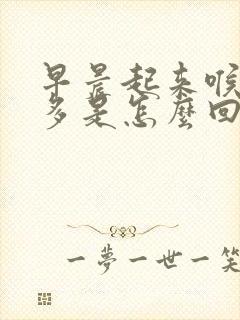 早晨起来喉
多是怎麼回
一夢一世一笑